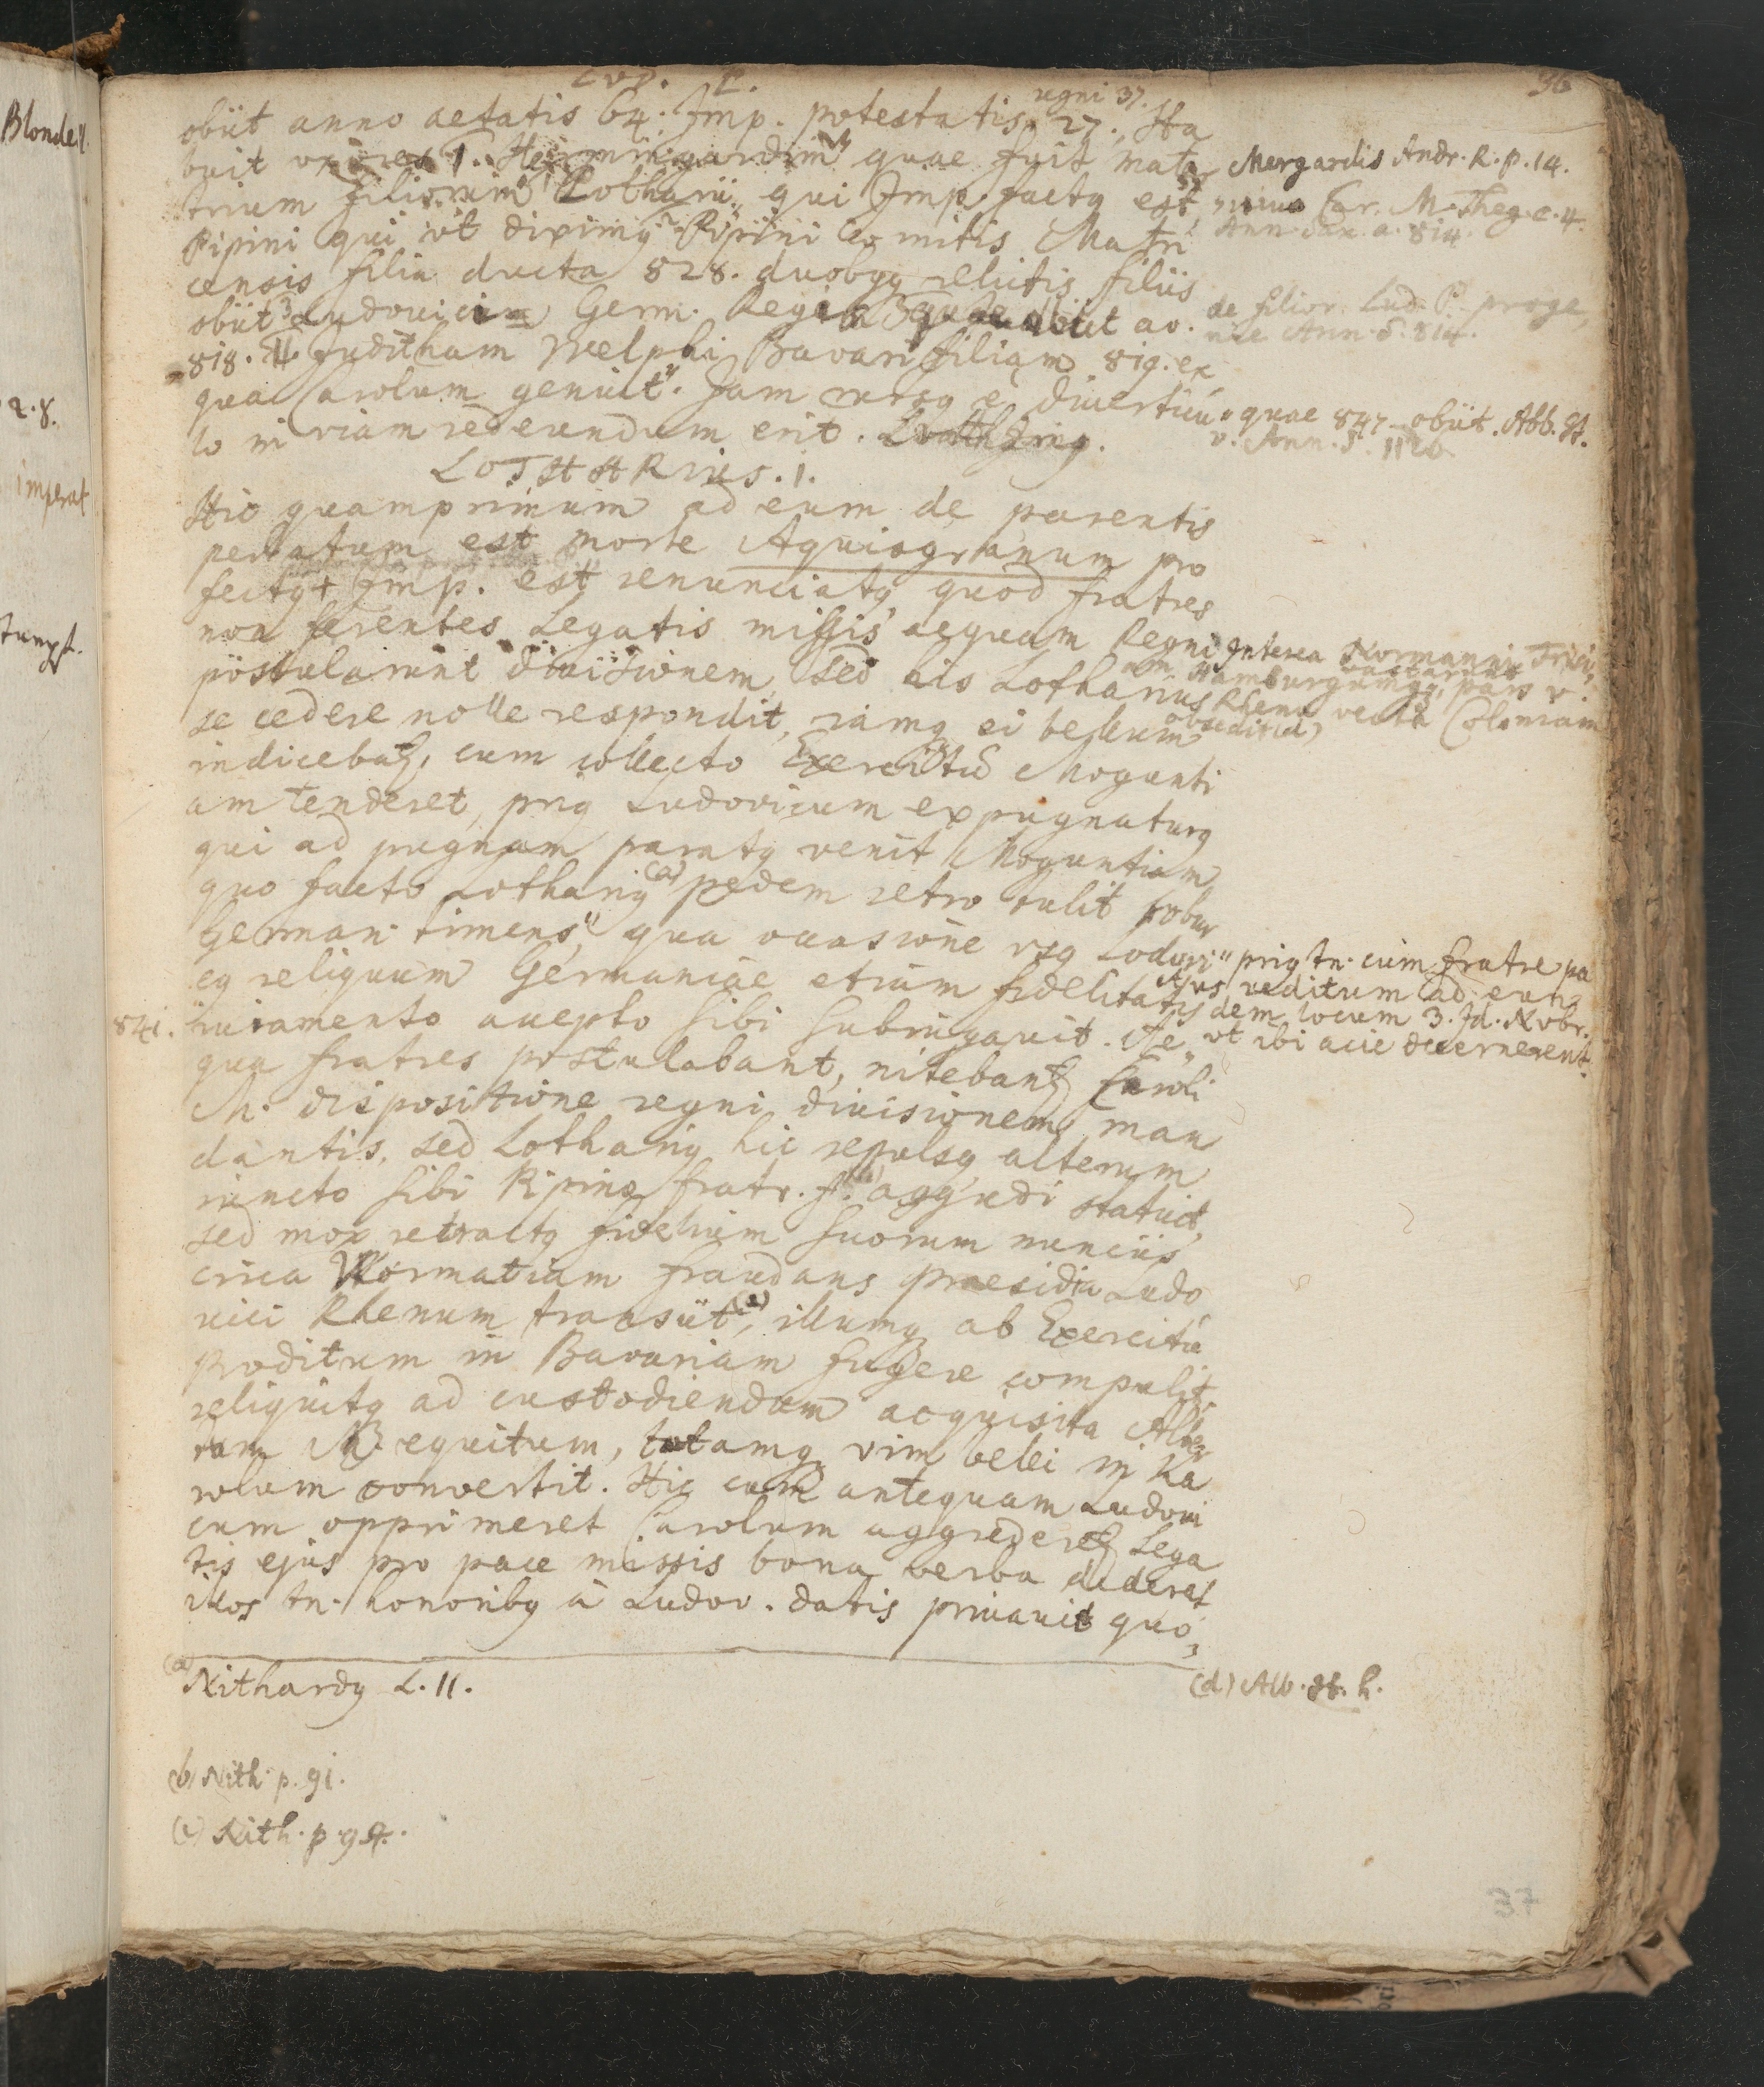 LVD. P.
36
regni 37.
obiit anno aetatis 64. Imp. potestatis 27. Ha
buit uxores I. Hermingardim quae fuit mater
trium filiorum Lotharii, qui Imp. factq est,
Pipini qui ut diximq Pipini Comitis Matri
censis filia ducta 828. duobqq relictis filiis
obiit 3 Ludovicum Germ. Regem quae obiit ao.
818. II. Juditham Welphi Bavari filiam 819. ex
qua Carolum genuit". Jam rursq e diverticu
lo in viam redeundum erit.
LOTHARius. I.
Hic quamprimum ad eum de parentis
perlatum est morte Aquisgranum pro
fectq + Imp. est renunciatq quod fratres
non ferentes Legatis missis aequam Regni
postularunt divisionem, sed his Lotharius
se cedere nolle respondit, iamq ei bellum
indicebat, cum collecto Exercitu Mogunti
am tenderet, priq Ludovicum expugnaturq
qui ad pugnam paratq venit Moguntiam
quo facto Lothariq (a) pedem retro tulit robur
German. timens", qua occasione usq Lodovi
cq reliquum Germaniae etiam fidelitatis
841. iuramento accepto sibi subiugavit. Ae
qua fratres postulabant, nitebant Caroli
M. dispositione regni divisionem man
dantis, sed Lothariq hic repulsq alterum
iuncto sibi Pipino fratr. f. aggredi statuit,
sed mox retractq fidelium suorum nunciis
circa Wormatiam fraudans praesidia Ludo
vici Rhenum transiit, illumq ab Exercitu
proditum in Bavariam fugere compulit,
reliquitq ad custodiendam acquisita Alber
tum equitum, totamq vim belli in Ka
rolum convertit. Hic cum antequam Ludovi
cum opprimeret Carolum aggrederet Lega
tis ejus pro pace missis bona verba dederat
illos tn. honoribq à Ludov. datis privavit quo
Mergardis Andr. R. p. 14.
Car. M. Theg. c. 4.
Ann. Sax. a. 814.
de filior. Lud. P. proge
nie Ann. S. 814.
" quae 847 obiit. Abb. St.
v. Ann. S. 1126
Interea Normanni Frisi
am Hamburgumq, pars v.
Rhenu vecta Coloniam
obsedit (d)
" priq tn. cum fratre pa
ctus reditum ad eun
dem locum 3. Id. Nvbr.
" ut ibi acie decernerent.
(a) Nithardq L. II.
(d) Alb. St. h.
(b) Nith. p. 91.
(c) Nith. p. 94.
37
Blondell
2. 8.
imperat